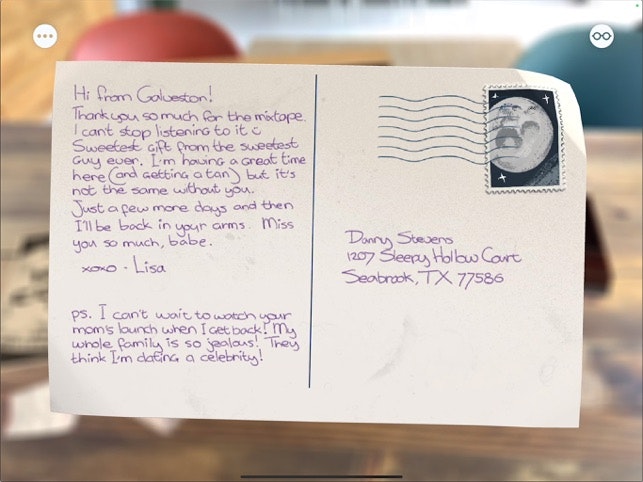 Hi from Galveston!
Thank you so much for the mixtape.
I can't stop listening to it
Sweetest gift from the sweetest
guy ever. I'm having a great time
here (and getting a tan) but it's
not the same without you.
Just a few more days and then
I'll be back in your arms. Miss
you so much, babe.
xoxo - Lisa
ps. I can't wait to watch your
mom's launch when I get back! My
whole family is so jealous! They
think I'm dating a celebrity!
Danny Stevens
1207 Sleepy Hollow Court
Seabrook, TX 77586